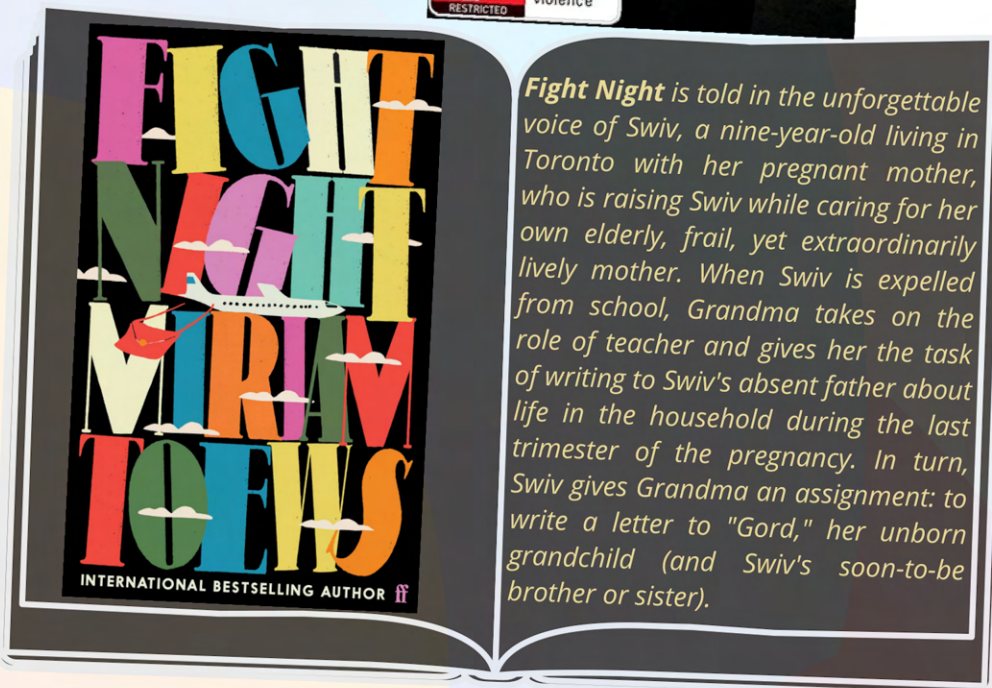 RESTRICTED
violence
FIGHT
NIGHT
MIRIAM
TOEWS
INTERNATIONAL BESTSELLING AUTHOR ff
Fight Night is told in the unforgettable
voice of Swiv, a nine-year-old living in
Toronto with her pregnant mother,
who is raising Swiv while caring for her
own elderly, frail, yet extraordinarily
lively mother. When Swiv is expelled
from school, Grandma takes on the
role of teacher and gives her the task
of writing to Swiv's absent father about
life in the household during the last
trimester of the pregnancy. In turn,
Swiv gives Grandma an assignment: to
write a letter to "Gord," her unborn
grandchild (and Swiv's soon-to-be
brother or sister).